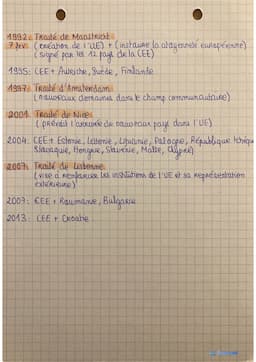 1992: Traité de Maastricht
7 fev: (création de l'UE) + (instaure la citoyenneté européenne)
(signé par les 12 pays de la CEE)
1995: CEE + Autriche, Suède, Finlande
1997: Traité d'Amsterdam
(nouveaux domaines dans le champ communautaire)
2001: Traité de Nice
(prévoit l'arrivée de nouveaux pays dans l'UE)
2004: CEE + Estonie, Lettonie, Lituanie, Pologne, République tchèque
Slovaquie, Hongrie, Slovénie, Malte, Chypre)
2007: Traité de Lisbonne
(vise à renforcer les institutions de l'UE et sa représentation
extérieure)
2007: CEE + Roumanie, Bulgarie
2013: CEE + Croatie